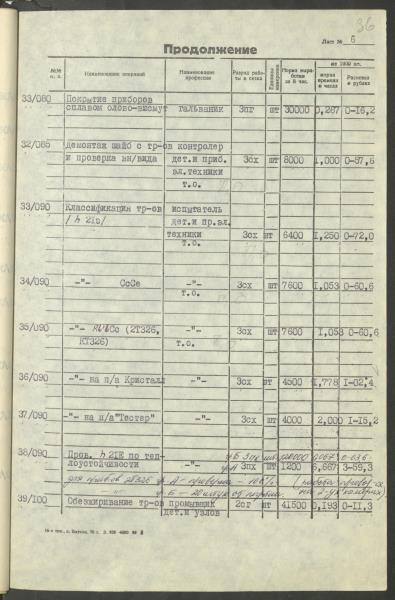 36
Лист № 6
Продолжение
№№ п. п. Наименование операций Наименование профессии Разряд работы и сетка Единицы измерения Норма выработки за 8 час. на 1000 шт. норма времени в часах Расценка в рублях
33/080 Покрытие приборов
сплавом олово-висмут гальваник 3пг шт 30000 0,267 0-16,2
32/085 Демонтаж шайб с тр-ов контролер
и проверка вн/вида дет.и приб. 3сх шт 8000 1,000 0-57,6
эл.техники
т.о.
33/090 Классификация тр-ов испытатель
/h 21е/ дет.и пр.эл.
техники 3сх шт 6400 1,250 0-72,0
т.о.
34/090 -"- СсСе -"- 3сх шт 7600 1,053 0-60,6
т.о.
35/090 -"- СсСе (2Т326, -"- 3сх шт 7600 1,053 0-60,6
КТ326) т.о.
36/090 -"- на п/а Кристалл -"- 3сх шт 4500 1,778 1-02,4
37/090 -"- на п/а"Тестер" -"- 3сх шт 4000 2,000 1-15,2
38/090 Пров. h 21Е по теп-
лоустойчивости -"- 3пх шт 1200 6,667 3-59,3
39/100 Обезжиривание тр-ов промывщик 2сг шт 41500 0,193 0-11,3
дет.и узлов